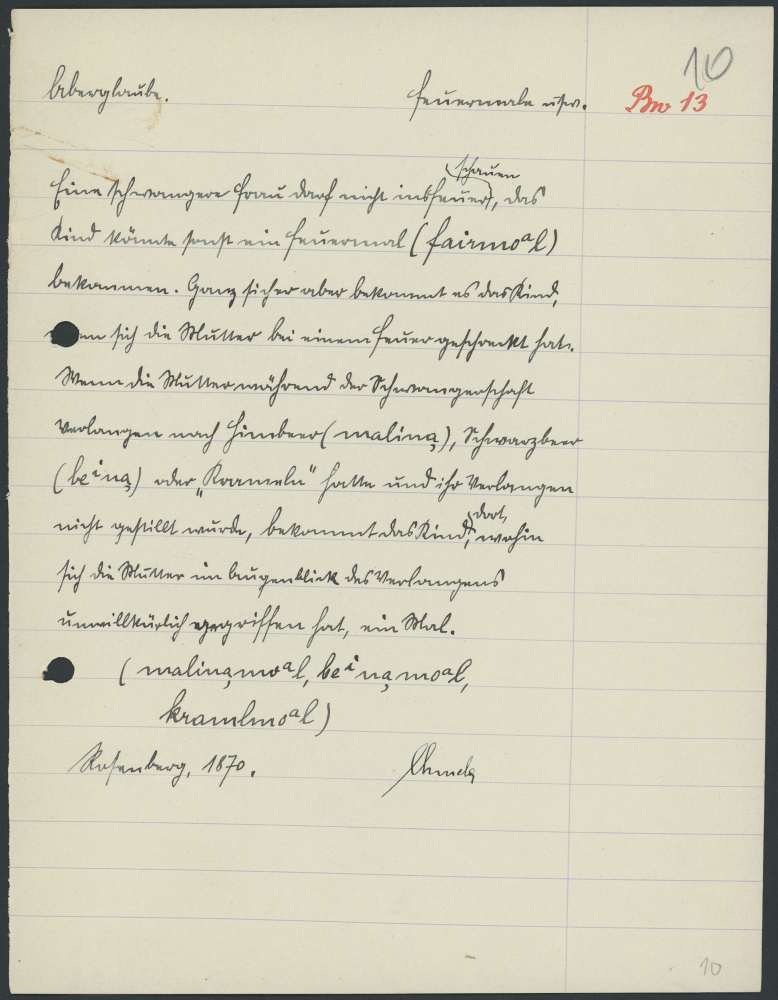 10
Aberglaube. Feuermale usw. Bw 13
schauen
Eine schwangere Frau darf nicht ins Feuer, das
Kind könnte sonst ein Feuermal (fairmoᵃl)
bekommen. Ganz sicher aber bekommt es das Kind,
wenn sich die Mutter bei einem Feuer geschreckt hat.
Wenn die Mutter während der Schwangerschaft
Verlangen nach Himbeer (malina̧), Schwarzbeer
(beⁱna̧) oder „Krameln" hatte und ihr Verlangen
dort,
nicht gestillt wurde, bekommt das Kind, wohin
sich die Mutter im Augenblick des Verlangens
unwillkürlich gegriffen hat, ein Mal.
(malina̧moᵃl, beⁱna̧moᵃl,
kramlmoᵃl)
Rosenberg, 1870.
10